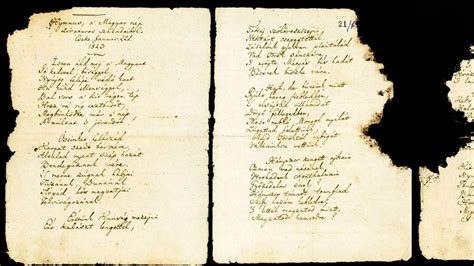 Hymnus, a' Magyar nép
zivataros századaiból.
Cseke, Januar. 22d.
1823.
Isten áldd meg a' Magyart
Jó kedvvel, bőséggel,
Nyújts feléje védő kart
Ha küzd ellenséggel;
Bal sors a' kit régen tép,
Hozz rá víg esztendőt,
Megbűnhődte már e' nép
A' multat 's jövendőt.
Őseinket felhozád
Kárpát szent bérczére,
Általad nyert szép hazát
Bendegúznak vére.
'S merre zúgnak habjai
Tiszának, Dunának,
Árpád hős magzatjai
Felvirágozának.
Értünk Kunság mezein
Ért kalászt lengettél,
21/
Tokaj szőlővesszein
Nektárt csepegtettél.
Zászlónk gyakran plántálád
Vad Török sánczára,
'S nyögte Mátyás bús hadát
Bécsnek büszke vára.
Hajh, de bűneink miatt
Gyúlt harag kebledben,
'S elsújtád villámidat
Dörgő fellegedben,
Most rabló Mongol nyilát
Zúgattad felettünk,
Majd Töröktől rabigát
Vállainkra vettünk.
Hányszor zengett ajkain
Ozman vad népének
Vert hadunk csonthalmain
Győzedelmi ének!
Hányszor támadt tenfiad
Szép hazám kebledre,
'S lettél magzatod miatt
Magzatod hamvedre?